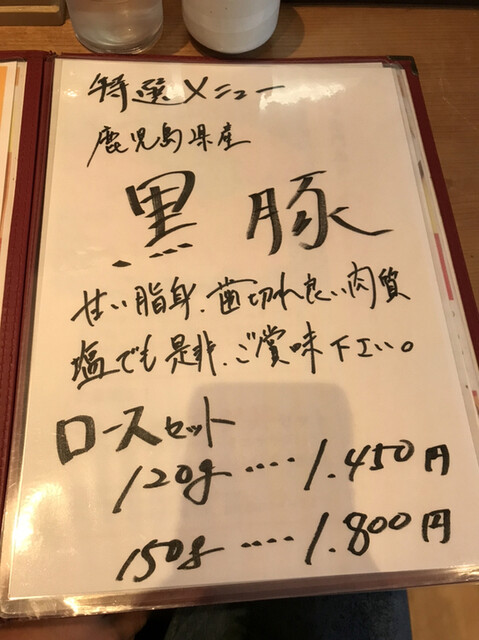 特選メニュー
鹿児島県産
黒豚
甘い脂身、歯切れ良い肉質
塩でも是非、ご賞味下エい。
ロースセット
120g ···· 1.450円
150g ···· 1.800円